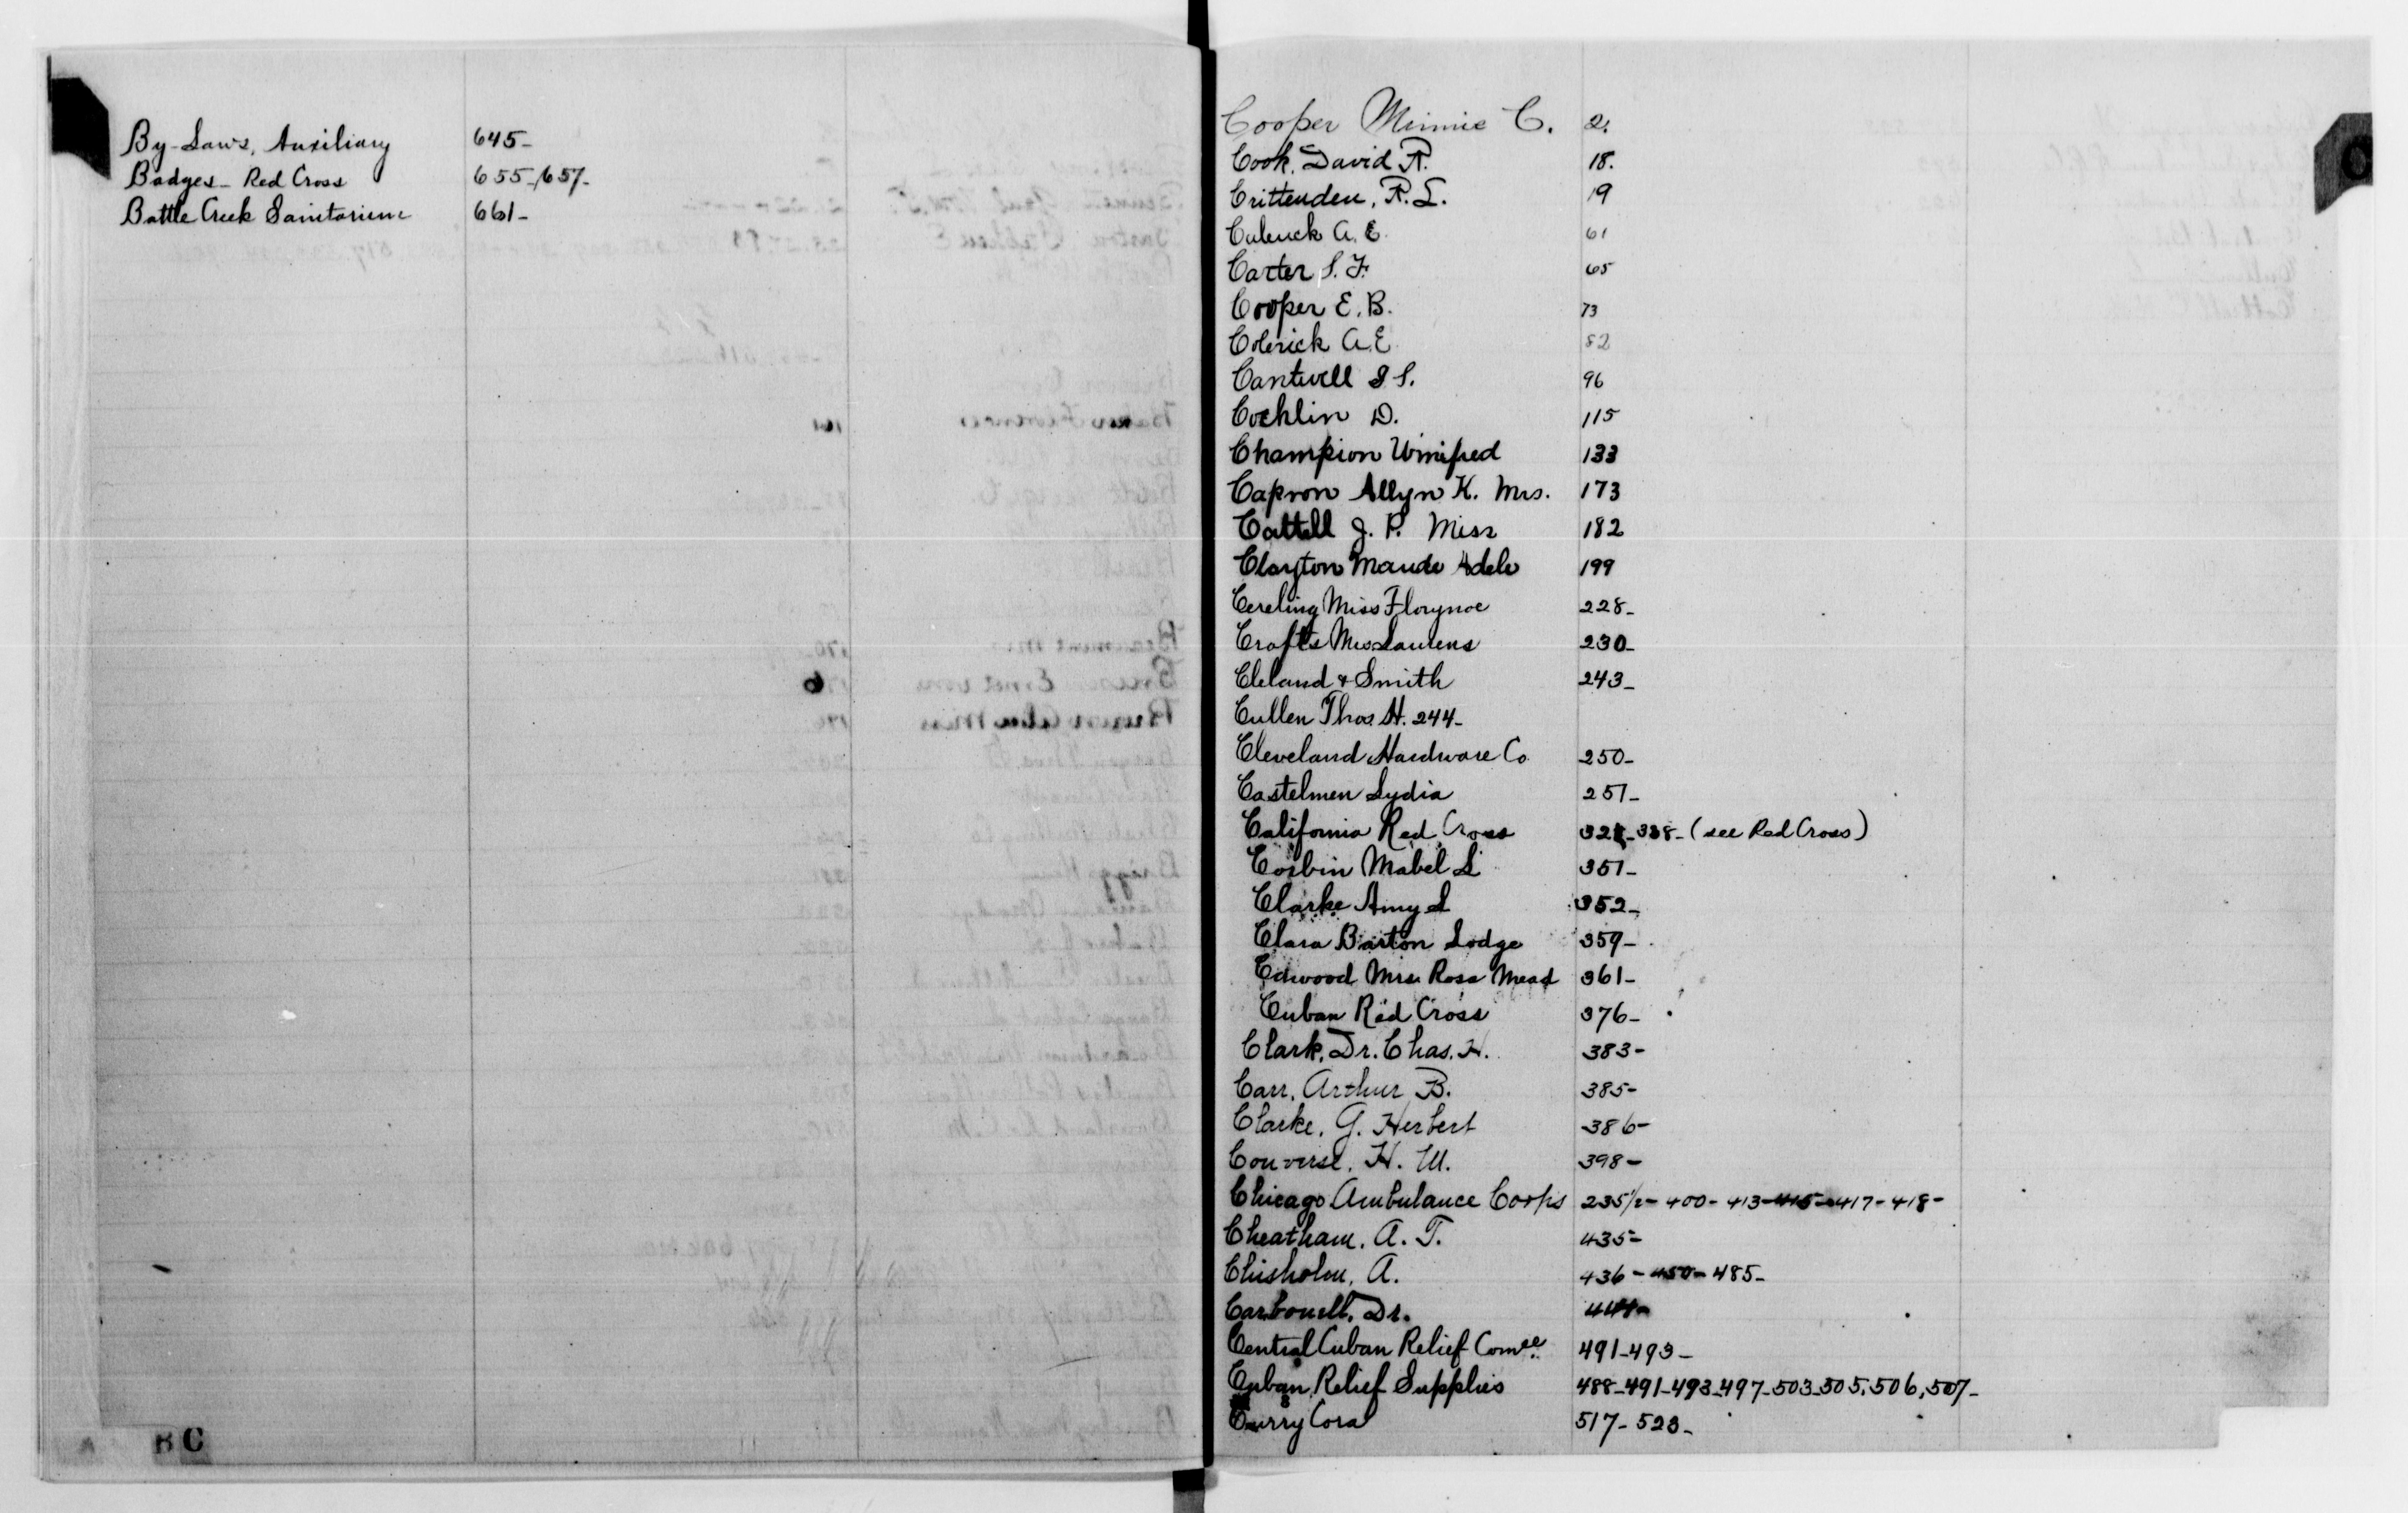 By-Laws, Auxiliary 645-
Badges- Red Cross 655-657-
Battle Creek Sanitarium 661-
B C
Cooper Minnie C. 2.
Cook, David R. 18.
Crittenden, R. L. 19
Culenck A. E. 61
Carter S. F. 65
Cooper E. B. 73
Colerick A. E. 82
Cantwell S S. 96
Cochlin D. 115
Champion Winifred 133
Capron Allyn K. Mrs. 173
Cattell J. P. Miss 182
Clayton Maude Adele 199
Cereling Miss Florynce 228-
Crafts Mrs Laurens 230-
Cleland & Smith 243-
Cullen Thos H. 244-
Cleveland Hardware Co. 250-
Castelmen Lydia 251-
California Red Cross 328-338- (see Red Cross)
Corbin Mabel L 351-
Clarke Amy L 352-
Clara Barton Lodge 359-
Edwood Mrs. Rosa Mead 361-
Cuban Red Cross 376-
Clark, Dr. Chas. H. 383-
Carr, Arthur B. 385-
Clarke, G. Herbert 386-
Converse, H. M. 398-
Chicago Ambulance Corps 235 1/2- 400- 413-415-417-418-
Cheatham, A. T. 435-
Chisholm, A. 436-450-485-
Carbonell, Dr. 444-
Central Cuban Relief Comee. 491-493-
Cuban Relief Supplies 488-491-493-497-503-505, 506, 507-
Curry Cora 517-523-
C